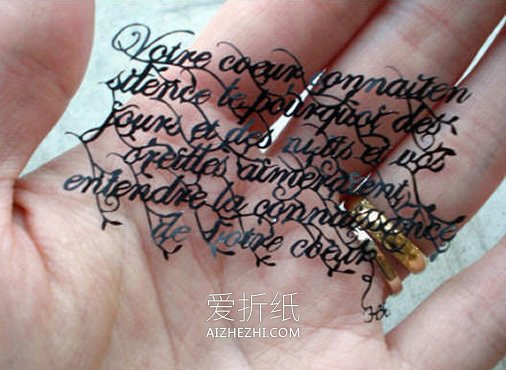 Votre coeur connait en
silence le pourquoi des
jours et des nuits et vos
oreilles aimeraient
entendre la connaissance
de votre coeur
爱折纸
AIZHEZHI.COM